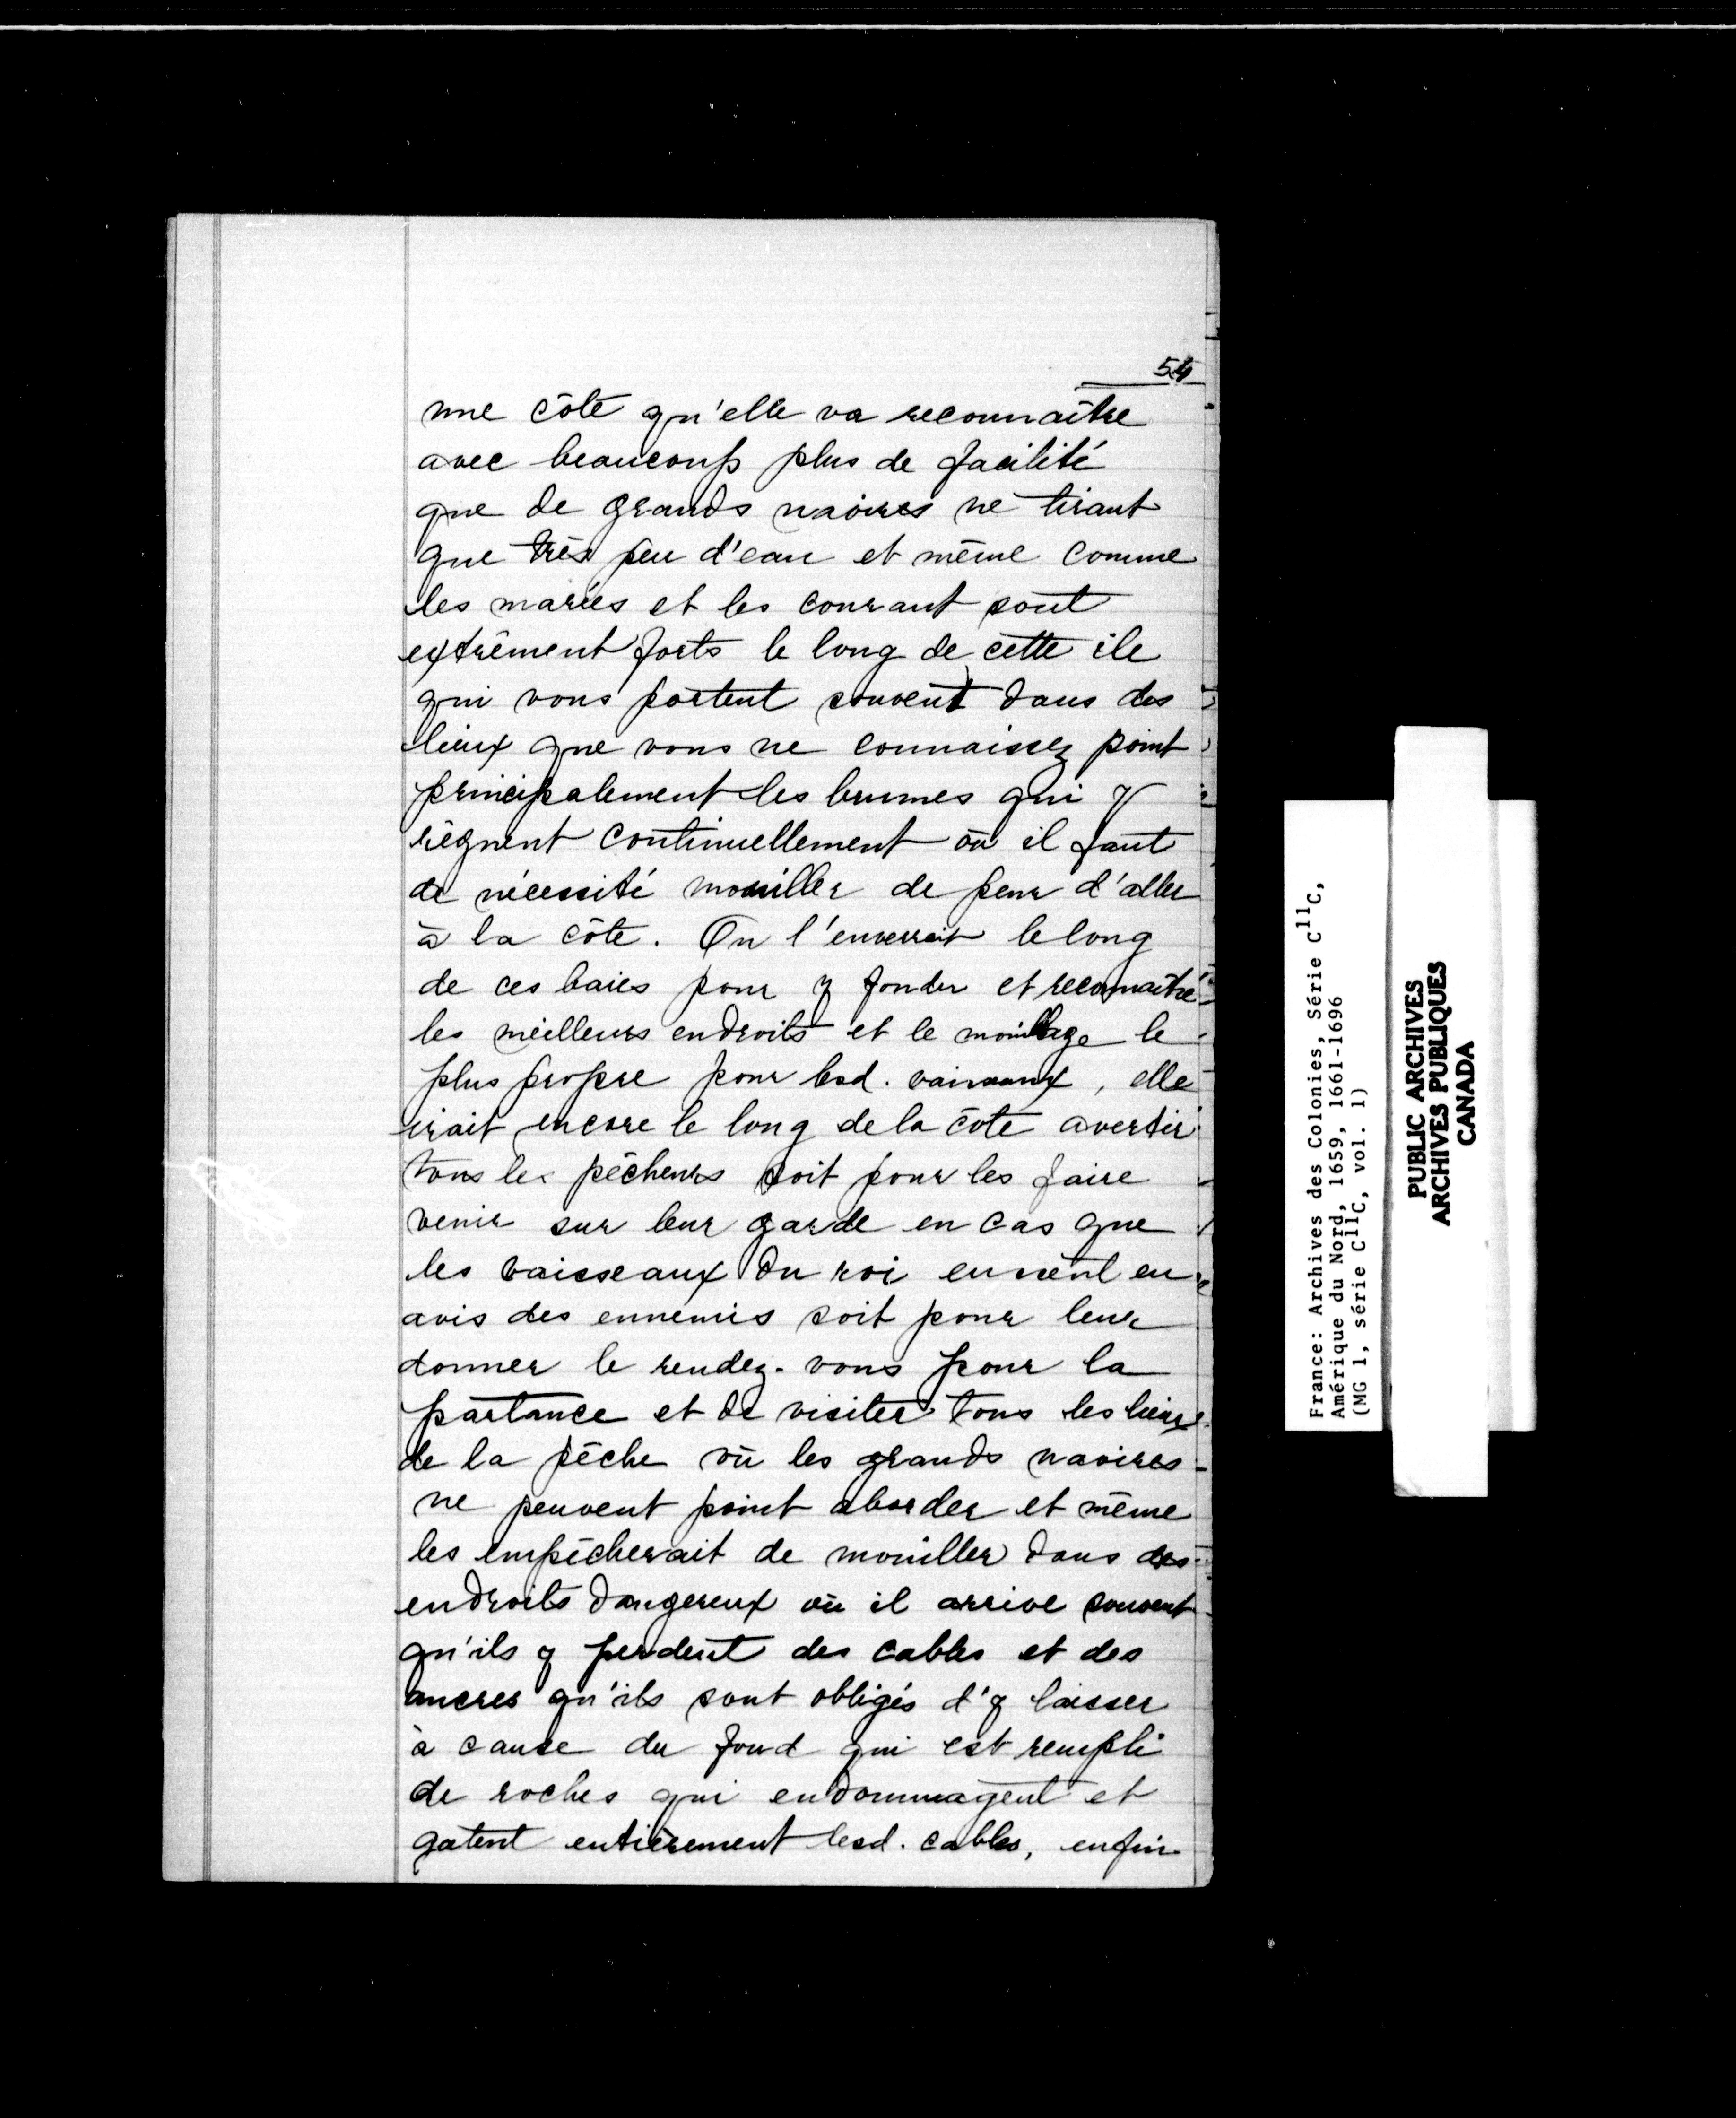 54
une côte qu'elle va reconnaître
avec beaucoup plus de facilité
que de grands navires ne tirant
que très peu d'eau et même comme
les marées et les courant sont
extrêment forts le long de cette ile
qui vous portent souvent dans des
lieux que vous ne connaissez point
principalement les brumes qui y
règnent continuellement où il faut
de nécessité mouiller de peur d'aller
à la côte. On l'enverrait le long
de ces baies pour y fonder et reconnaître
les meilleurs endroits et le mouillage le
plus propre pour lesd. vaisseaux, elle
irait encore le long de la côte avertir
tous les pêcheurs soit pour les faire
venir sur leur garde en cas que
les vaisseaux du roi eussent eu
avis des ennemis soit pour leur
donner le rendez-vous pour la
partance et de visiter tous les lieux
de la pêche où les grands navires
ne peuvent point aborder et même
les empêcherait de mouiller dans des
endroits dangereux où il arrive souvent
qu'ils y perdent des cables et des
ancres qu'ils sont obligés d'y laisser
à cause du fond qui est rempli
de roches qui endommagent et
gatent entièrement lesd. cables, enfin
France: Archives des Colonies, Série C11C,
Amérique du Nord, 1659, 1661-1696
(MG 1, série C11C, vol. 1)
PUBLIC ARCHIVES
ARCHIVES PUBLIQUES
CANADA